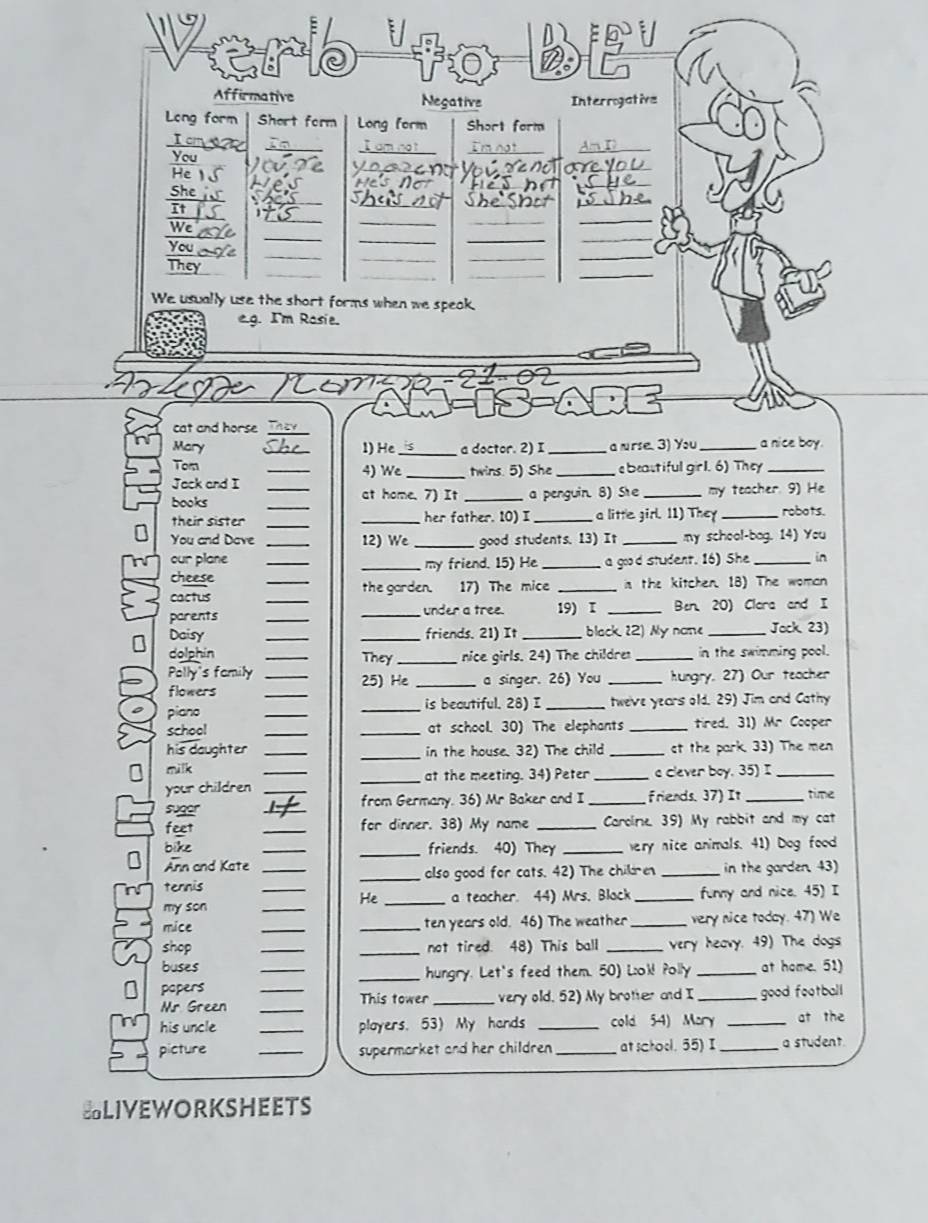 Verb 'to BE'
Affirmative Negative Interrogative
Long form Short form Long form Short form
I am I'm I am not I'm not Am I?
You you're you're not are you
He is He's He's not He's not is He
She is she's She is not She's not is she
It is it's
We are
You are
They
We usually use the short forms when we speak.
e.g. I'm Rosie.
21-02
AM-IS-ARE
HE - SHE - IT - YOU - WE - THEY
cat and horse They
Mary She
Tom
Jack and I
books
their sister
You and Dave
our plane
cheese
cactus
parents
Daisy
dolphin
Polly's family
flowers
piano
school
his daughter
milk
your children
sugar It
feet
bike
Ann and Kate
tennis
my son
mice
shop
buses
papers
Mr Green
his uncle
picture
1) He is a doctor. 2) I ______ a nurse. 3) You ______ a nice boy.
4) We ______ twins. 5) She ______ a beautiful girl. 6) They ______
at home. 7) It ______ a penguin. 8) She ______ my teacher. 9) He
______ her father. 10) I ______ a little girl. 11) They ______ robots.
12) We ______ good students. 13) It ______ my school-bag. 14) You
______ my friend. 15) He ______ a good student. 16) She ______ in
the garden. 17) The mice ______ in the kitchen. 18) The woman
______ under a tree. 19) I ______ Ben. 20) Clara and I
______ friends. 21) It ______ black. 22) My name ______ Jack. 23)
They ______ nice girls. 24) The children ______ in the swimming pool.
25) He ______ a singer. 26) You ______ hungry. 27) Our teacher
______ is beautiful. 28) I ______ twelve years old. 29) Jim and Cathy
______ at school. 30) The elephants ______ tired. 31) Mr Cooper
______ in the house. 32) The child ______ at the park. 33) The men
______ at the meeting. 34) Peter ______ a clever boy. 35) I ______
from Germany. 36) Mr Baker and I ______ friends. 37) It ______ time
for dinner. 38) My name ______ Caroline. 39) My rabbit and my cat
______ friends. 40) They ______ very nice animals. 41) Dog food
______ also good for cats. 42) The children ______ in the garden. 43)
He ______ a teacher. 44) Mrs. Black ______ funny and nice. 45) I
______ ten years old. 46) The weather ______ very nice today. 47) We
______ not tired. 48) This ball ______ very heavy. 49) The dogs
______ hungry. Let's feed them. 50) Look! Polly ______ at home. 51)
This tower ______ very old. 52) My brother and I ______ good football
players. 53) My hands ______ cold. 54) Mary ______ at the
supermarket and her children ______ at school. 55) I ______ a student.
LIVEWORKSHEETS